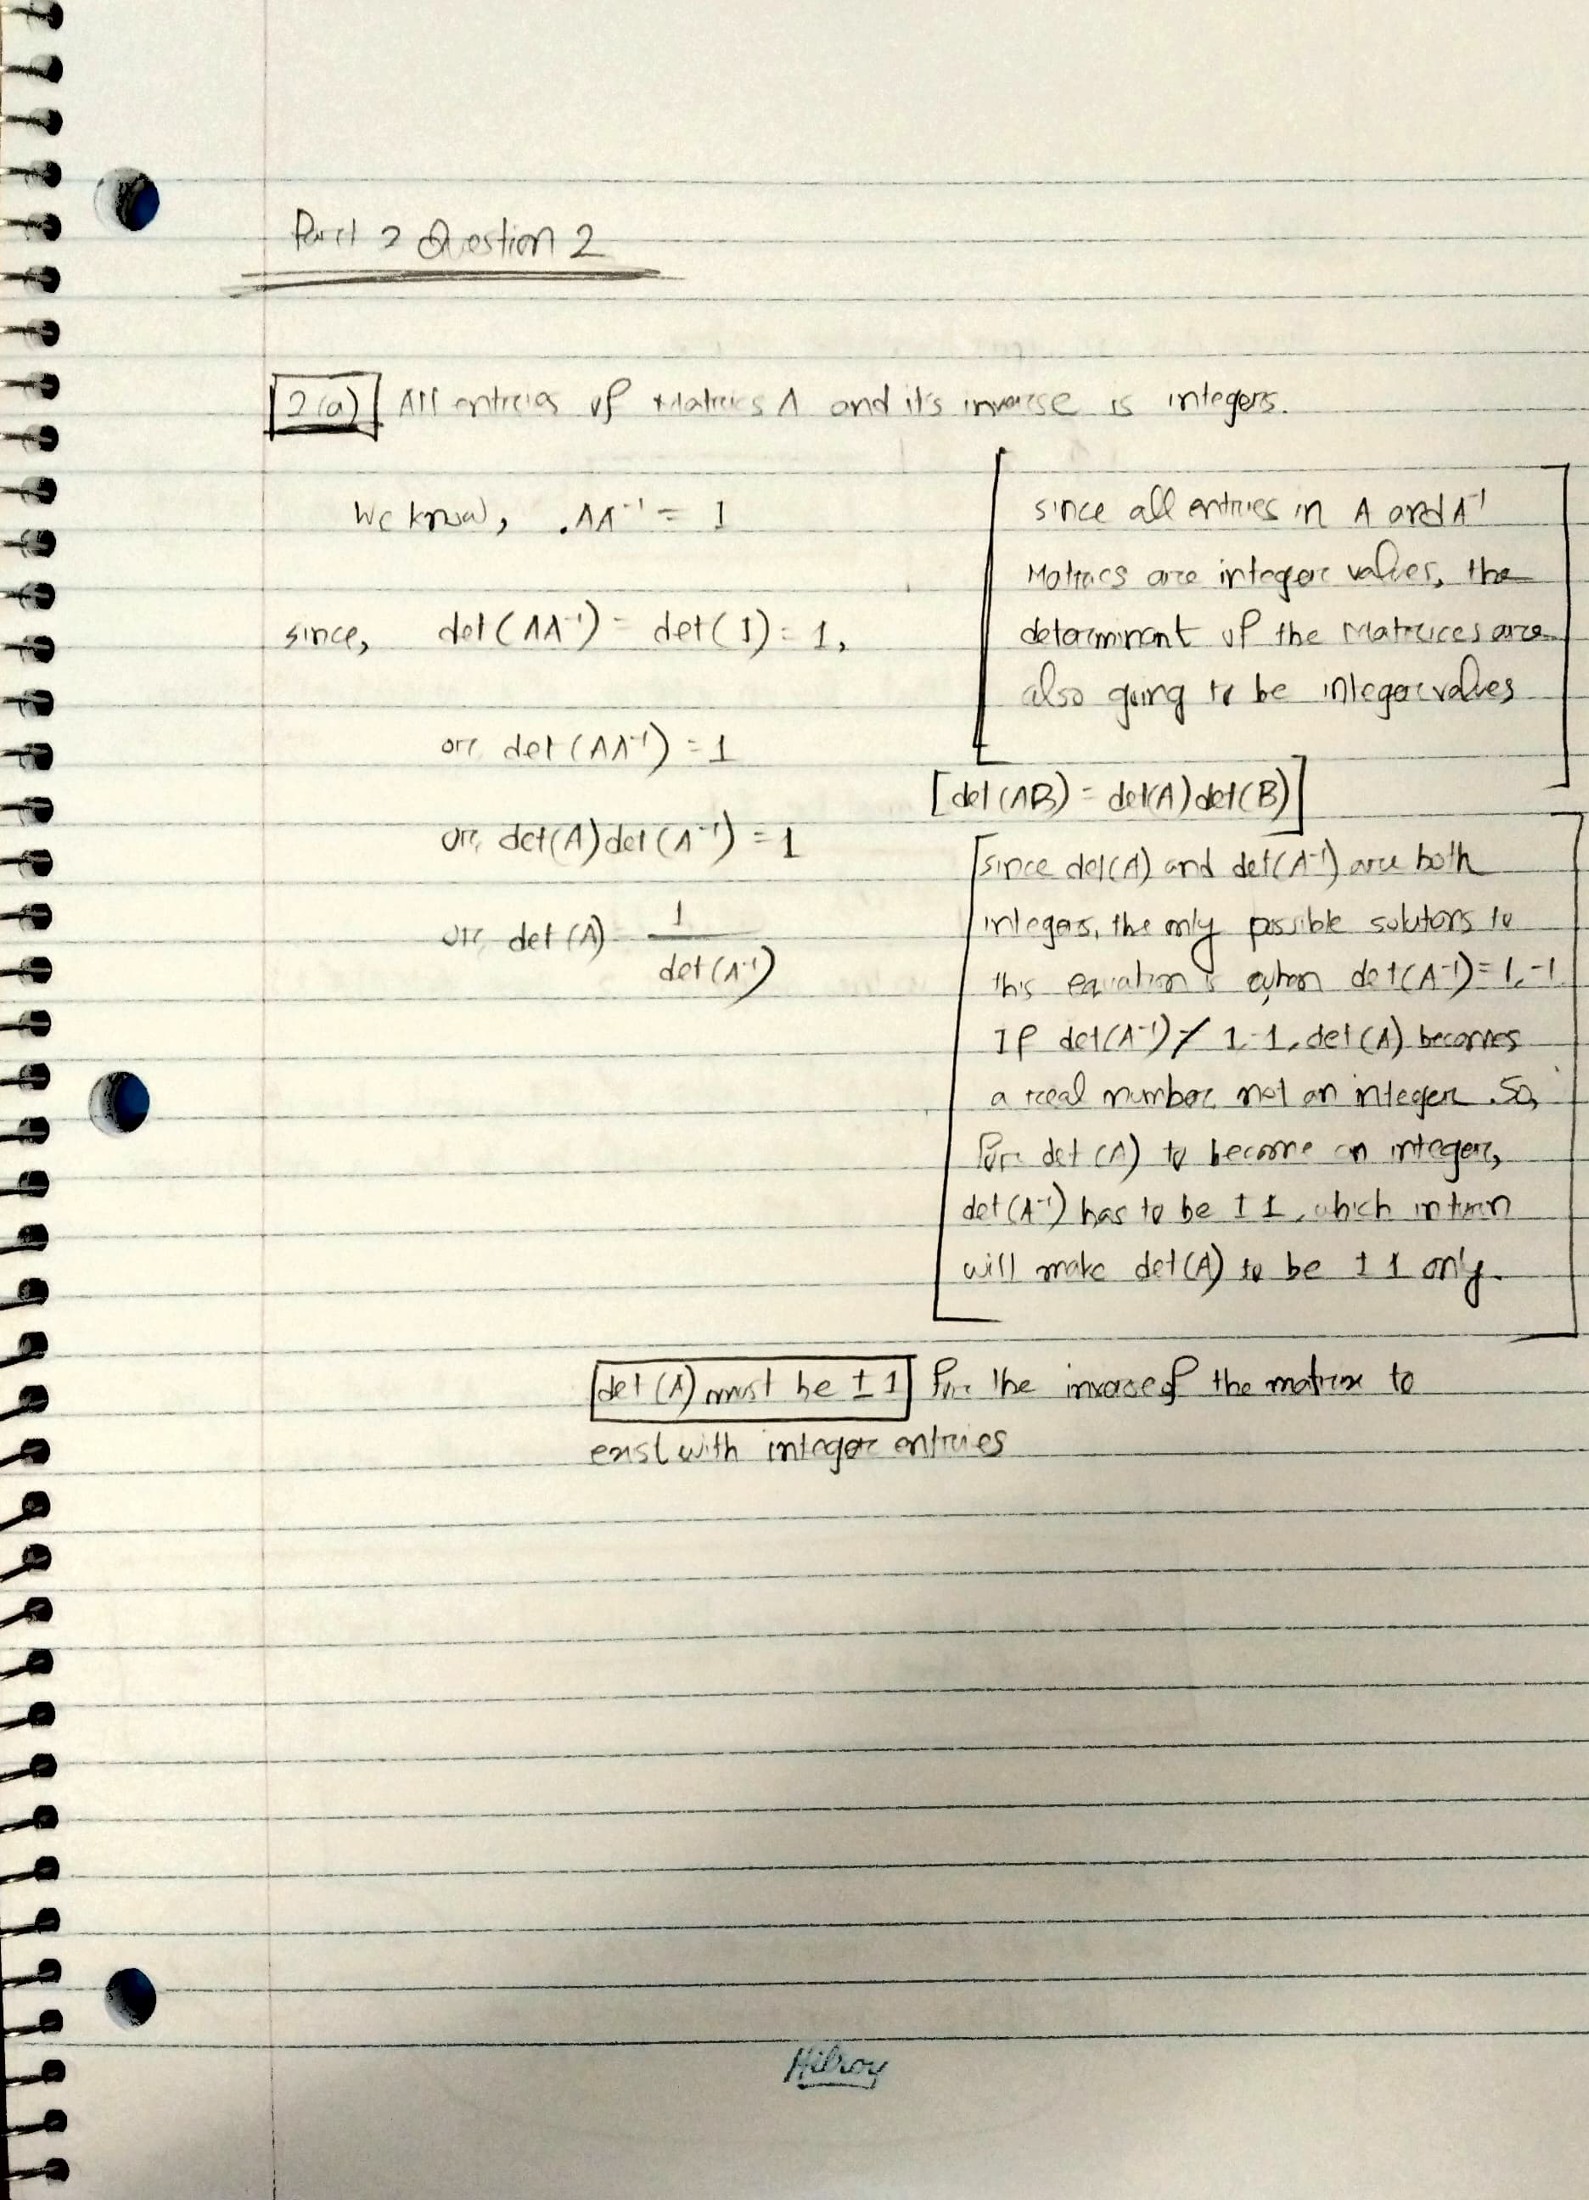 Part 2 Question 2
2(a) All entries of Matrics A and it's inverse is integers.
We know, AA⁻¹ = I
since, det(AA⁻¹) = det(I) = 1,
or, det(AA⁻¹) = 1
or, det(A)det(A⁻¹) = 1
or, det(A) = 1/det(A⁻¹)
since all entries in A and A⁻¹
Matrics are integer values, the
determinant of the Matrices are
also going to be integer values
[det(AB) = det(A)det(B)]
[since det(A) and det(A⁻¹) are both
integers, the only possible solutions to
this equation is when det(A⁻¹) = 1, -1
If det(A⁻¹) ≠ 1, -1, det(A) becomes
a real number, not an integer. So,
for det(A) to become an integer,
det(A⁻¹) has to be ±1, which in turn
will make det(A) to be ±1 only.
det(A) must be ±1 for the inverse of the matrix to
exist with integer entries
Hilroy